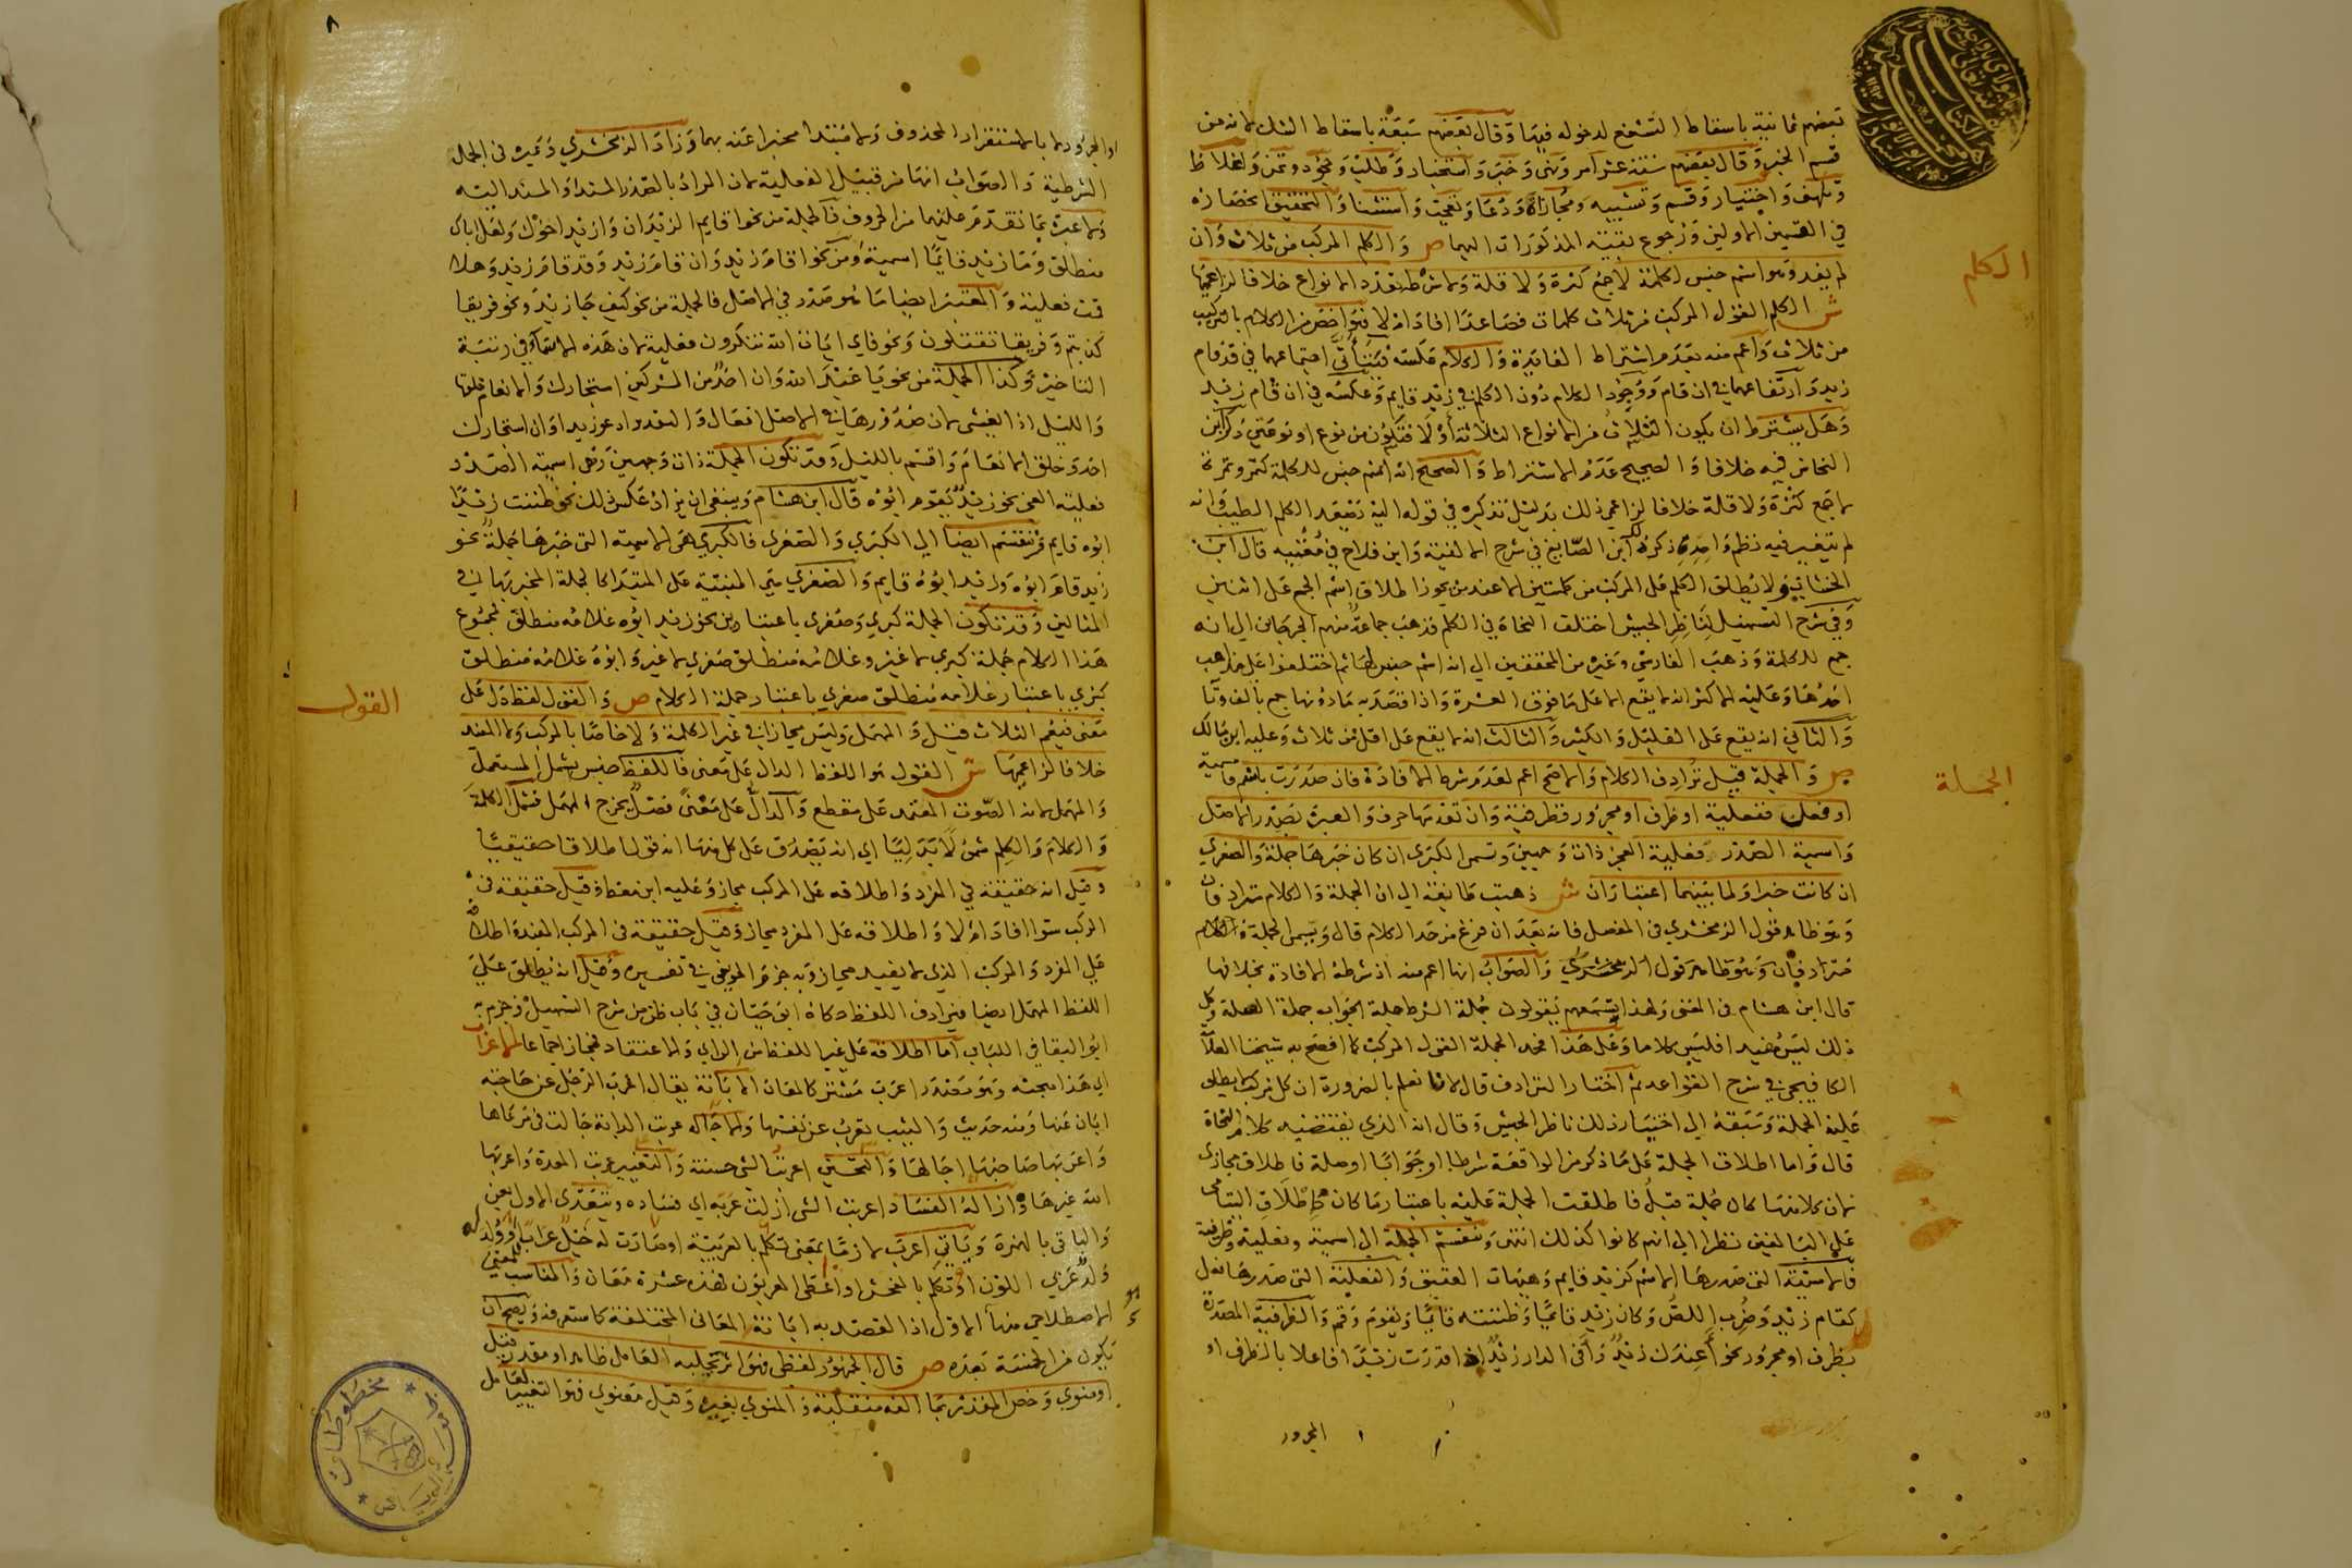 بعضهم ثمانية باسقاط التشفع لدخوله فيها وقال بعضهم سبعة باسقاط الشك لانه من
قسم الخبر وقال بعضهم ستة عشر امر ونهي وخبر واستخبار وطلب وجحود وتمن واغلاظ
وتلهف واختيار وقسم وتشبيه ومجازاة ودعا وتعجب واستثنا والتحقيق انحصاره
في القسمين الاولين ورجوع بقية المذكورات اليهما ص والكلم المركب من ثلاث وان
الكلم
لم يفد وهو اسم جنس لكلمة لا جمع كثرة ولا قلة ولا شرطه تعدد الانواع خلافا لزاعميها
ش الكلم القول المركب من ثلاث كلمات فصاعدا افاد ام لا فهو اخص من الكلام بالتركيب
من ثلاث واعم منه بعدم اشتراط الفايدة والكلام عكسه فيتأتى اجتماعهما في قد قام
زيد وارتفاعهما في ان قام ووجود الكلام دون الكلم في زيد قايم وعكسه في ان قام زيد
وهل يشترط ان يكون الثلاث من الانواع الثلاثة أو لا فتكون من نوع او نوعين ذكر ابن
النحاس فيه خلافا والصحيح عدم الاشتراط والصحيح انه اسم جنس للكلمة كتمر وتمرة
لا جمع كثرة ولا قلة خلافا لزاعمي ذلك بدليل تذكيره في قوله اليه يصعد الكلم الطيب وانه
لم يتغير فيه نظم واحده ذكره ابن الصايغ في شرح الالفية وابن فلاح في مغنيه قال ابن
الخشاب ولا يطلق الكلم على المركب من كلمتين الا عند من يجوز اطلاق اسم الجمع على اثنين
وفي شرح التسهيل لناظر الجيش اختلف النحاة في الكلم فذهب جماعة منهم الجرجاني الى انه
جمع للكلمة وذهب الفارسي وغيره من المحققين الى انه اسم جنس لها ثم اختلفوا على مذاهب
احدها وعليه الاكثر انه لا يقع الا على ما فوق العشرة واذا قصد به ما دونها جمع بالف وتا
والثاني انه يقع على القليل والكثير والثالث انه لا يقع على اقل من ثلاث وعليه ابن مالك
ص والجملة قيل ترادف الكلام والاصح اعم لعدم شرط الافادة فان صدرت باسم فاسمية
الجملة
او فعل ففعلية او ظرف او مجرور فظرفية وان تقدمها حرف والعبرة بصدر الاصل
واسمية الصدر فعلية العجز ذات وجهين وتسمى الكبرى ان كان خبرها جملة والصغرى
ان كانت خبرا ولما بينهما اعتباران ش ذهبت طايفة الى ان الجملة والكلام مترادفان
وهو ظاهر قول الزمخشري في المفصل فانه بعد ان فرغ من حد الكلام قال ويسمى الجملة
مترادفان وهو ظاهر قول الزمخشري والصواب انها اعم منه اذ شرطه الافادة بخلافها
قال ابن هشام في المغني ولهذا تسمعهم يقولون جملة الشرط جملة الجواب جملة الصلة وكل
ذلك ليس مفيدا فليس كلاما وعلى هذا فحد الجملة القول المركب كما افصح به شيخنا العلامة
الكافيجي في شرح القواعد ثم اختار الترادف قال لانا نعلم بالضرورة ان كل مركب لا يطلق
عليه الجملة وسبقه الى اختيار ذلك ناظر الجيش وقال انه الذي يقتضيه كلام النحاة
قال واما اطلاق الجملة على ما ذكر من الواقعة شرطا او جوابا او صلة فاطلاق مجازي
لان كلا منها كان جملة قبل فاطلقت الجملة عليه باعتبار ما كان كاطلاق اليتامى
على البالغين نظرا الى انهم كانوا كذلك انتهى وتنقسم الجملة الى اسمية وفعلية وظرفية
فالاسمية التي صدرها اسم كزيد قايم وهيهات العقيق والفعلية التي صدرها فعل
كقام زيد وضرب اللص وكان زيد قايما وظننته قايما ويقوم وقم والظرفية المصدرة
بظرف او مجرور نحو أعندك زيد وأفي الدار زيد اذا قدرت زيدا فاعلا بالظرف او
المجرور
٨
او المجرور لا بالاستقرار المحذوف ولا مبتدا مخبرا عنه بهما وزاد الزمخشري وغيره في الجمل
الشرطية والصواب انها من قبيل الفعلية لان المراد بالصدر المسند او المسند اليه
ولا عبرة بما تقدم عليهما من الحروف فالجملة من نحو اقايم الزيدان وازيد اخوك ولعل اباك
منطلق وما زيد قايما اسمية ومن نحو اقام زيد وان قام زيد وقد قام زيد وهلا
قمت فعلية والمعتبر ايضا ما هو صدر في الاصل فالجملة من نحو كيف جا زيد ونحو فريقا
كذبتم وفريقا تقتلون ونحو فاي ايات الله تنكرون فعلية لان هذه الاسماء في رتبة
التاخير وكذا الجملة من نحو يا عبد الله وان احد من المشركين استجارك والانعام خلقها
والليل اذا يغشى لان صدورها في الاصل افعال والتقدير ادعو زيدا وان استجارك
احد وخلق الانعام واقسم بالليل وقد تكون الجملة ذات وجهين وهي اسمية الصدر
فعلية العجز نحو زيد يقوم ابوه قال ابن هشام وينبغي ان يزاد عكس ذلك نحو ظننت زيدا
ابوه قايم وتنقسم ايضا الى الكبرى والصغرى فالكبرى هي الاسمية التي خبرها جملة نحو
زيد قام ابوه وزيد ابوه قايم والصغرى هي المبنية على المبتدا كالجملة المخبر بها في
المثالين وقد تكون الجملة كبرى وصغرى باعتبارين نحو زيد ابوه غلامه منطلق فمجموع
هذا الكلام جملة كبرى لا غير وغلامه منطلق صغرى لا غير وابوه غلامه منطلق
كبرى باعتبار غلامه منطلق صغرى باعتبار جملة الكلام ص والقول لفظ دل على
القول
معنى فيعم الثلاث قيل والمهمل وليس مجازا في غير الكلمة ولا خاصا بالمركب ولا المفيد
خلافا لزاعميها ش القول هو اللفظ الدال على معنى فاللفظ جنس يشمل المستعمل
والمهمل لانه الصوت المعتمد على مقطع والدال على معنى فصل يخرج المهمل فشمل الكلمة
والكلام والكلم شمولا بدليا اي انه يصدق على كل منها انه قول اطلاقا حقيقيا
وقيل انه حقيقة في المفرد واطلاقه على المركب مجاز وعليه ابن معط وقيل حقيقة في
المركب سوا افاد ام لا واطلاقه على المفرد مجاز وقيل حقيقة في المركب المفيد واطلاقه
على المفرد والمركب الذي لا يفيد مجاز وبه جزم الجويني في تفسيره وقيل انه يطلق على
اللفظ المهمل ايضا فيرادف اللفظ حكاه ابو حيان في باب ظن من شرح التسهيل وجزم به
ابو البقا في اللباب اما اطلاقه على غير اللفظ من الراي والاعتقاد فمجاز اجماعا الاعراب
اي هذا مبحثه وهو مصدر اعرب مشترك لمعان الابانة يقال اعرب الرجل عن حاجته
ابان عنها ومنه حديث والثيب تعرب عن نفسها والاجالة عربت الدابة جالت في مرعاها
واعربها صاحبها اجالها والتحسين اعربت الشي حسنته والتغيير عربت المعدة واعربها
الله غيرها وازالة الفساد اعربت الشي ازلت عربه اي فساده ويتعدى الاول بعن
والباقي بالهمزة وياتي اعرب لازما بمعنى تكلم بالعربية او صارت له خيل عراب او ولد له
ولد عربي اللون او تكلم بالفحش او اعطى العربون فهذه عشرة معان والمناسب للمعنى
الاصطلاحي منها الاول اذا القصد به ابانة المعاني المختلفة كما ستعرفه ويصح ان
يكون من الخمسة بعده ص قال الجمهور لفظي فهو اثر يجلبه العامل ظاهر او مقدر قيل
او منوي وخص المقدر بما الفه منقلبة والمنوي بغيره وقيل معنوي فهو التغيير لعامل
مخطوطات